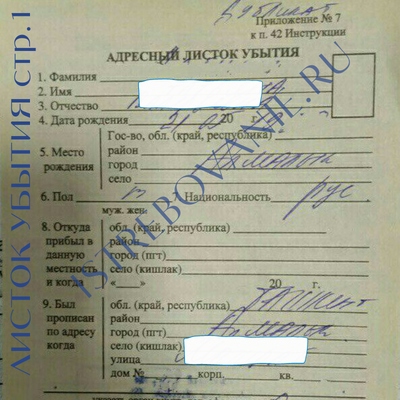 Дубликат
Приложение № 7
к п. 42 Инструкции
АДРЕСНЫЙ ЛИСТОК УБЫТИЯ
1. Фамилия
2. Имя
3. Отчество
4. Дата рождения 21 20 г.
5. Место рождения
Гос-во, обл. (край, республика)
район
город Алмалык
село
6. Пол 7. Национальность рус
муж. жен.
8. Откуда прибыл в данную местность и когда
обл. (край, республика)
район
город (пгт)
село (кишлак)
«___» 20 г.
9. Был прописан по адресу когда
обл. (край, республика) Ташкент
район
город (пгт) Алмалык
село (кишлак)
улица
дом № корп. кв.
ЛИСТОК УБЫТИЯ стр.1
ISTREBOVANIE.RU